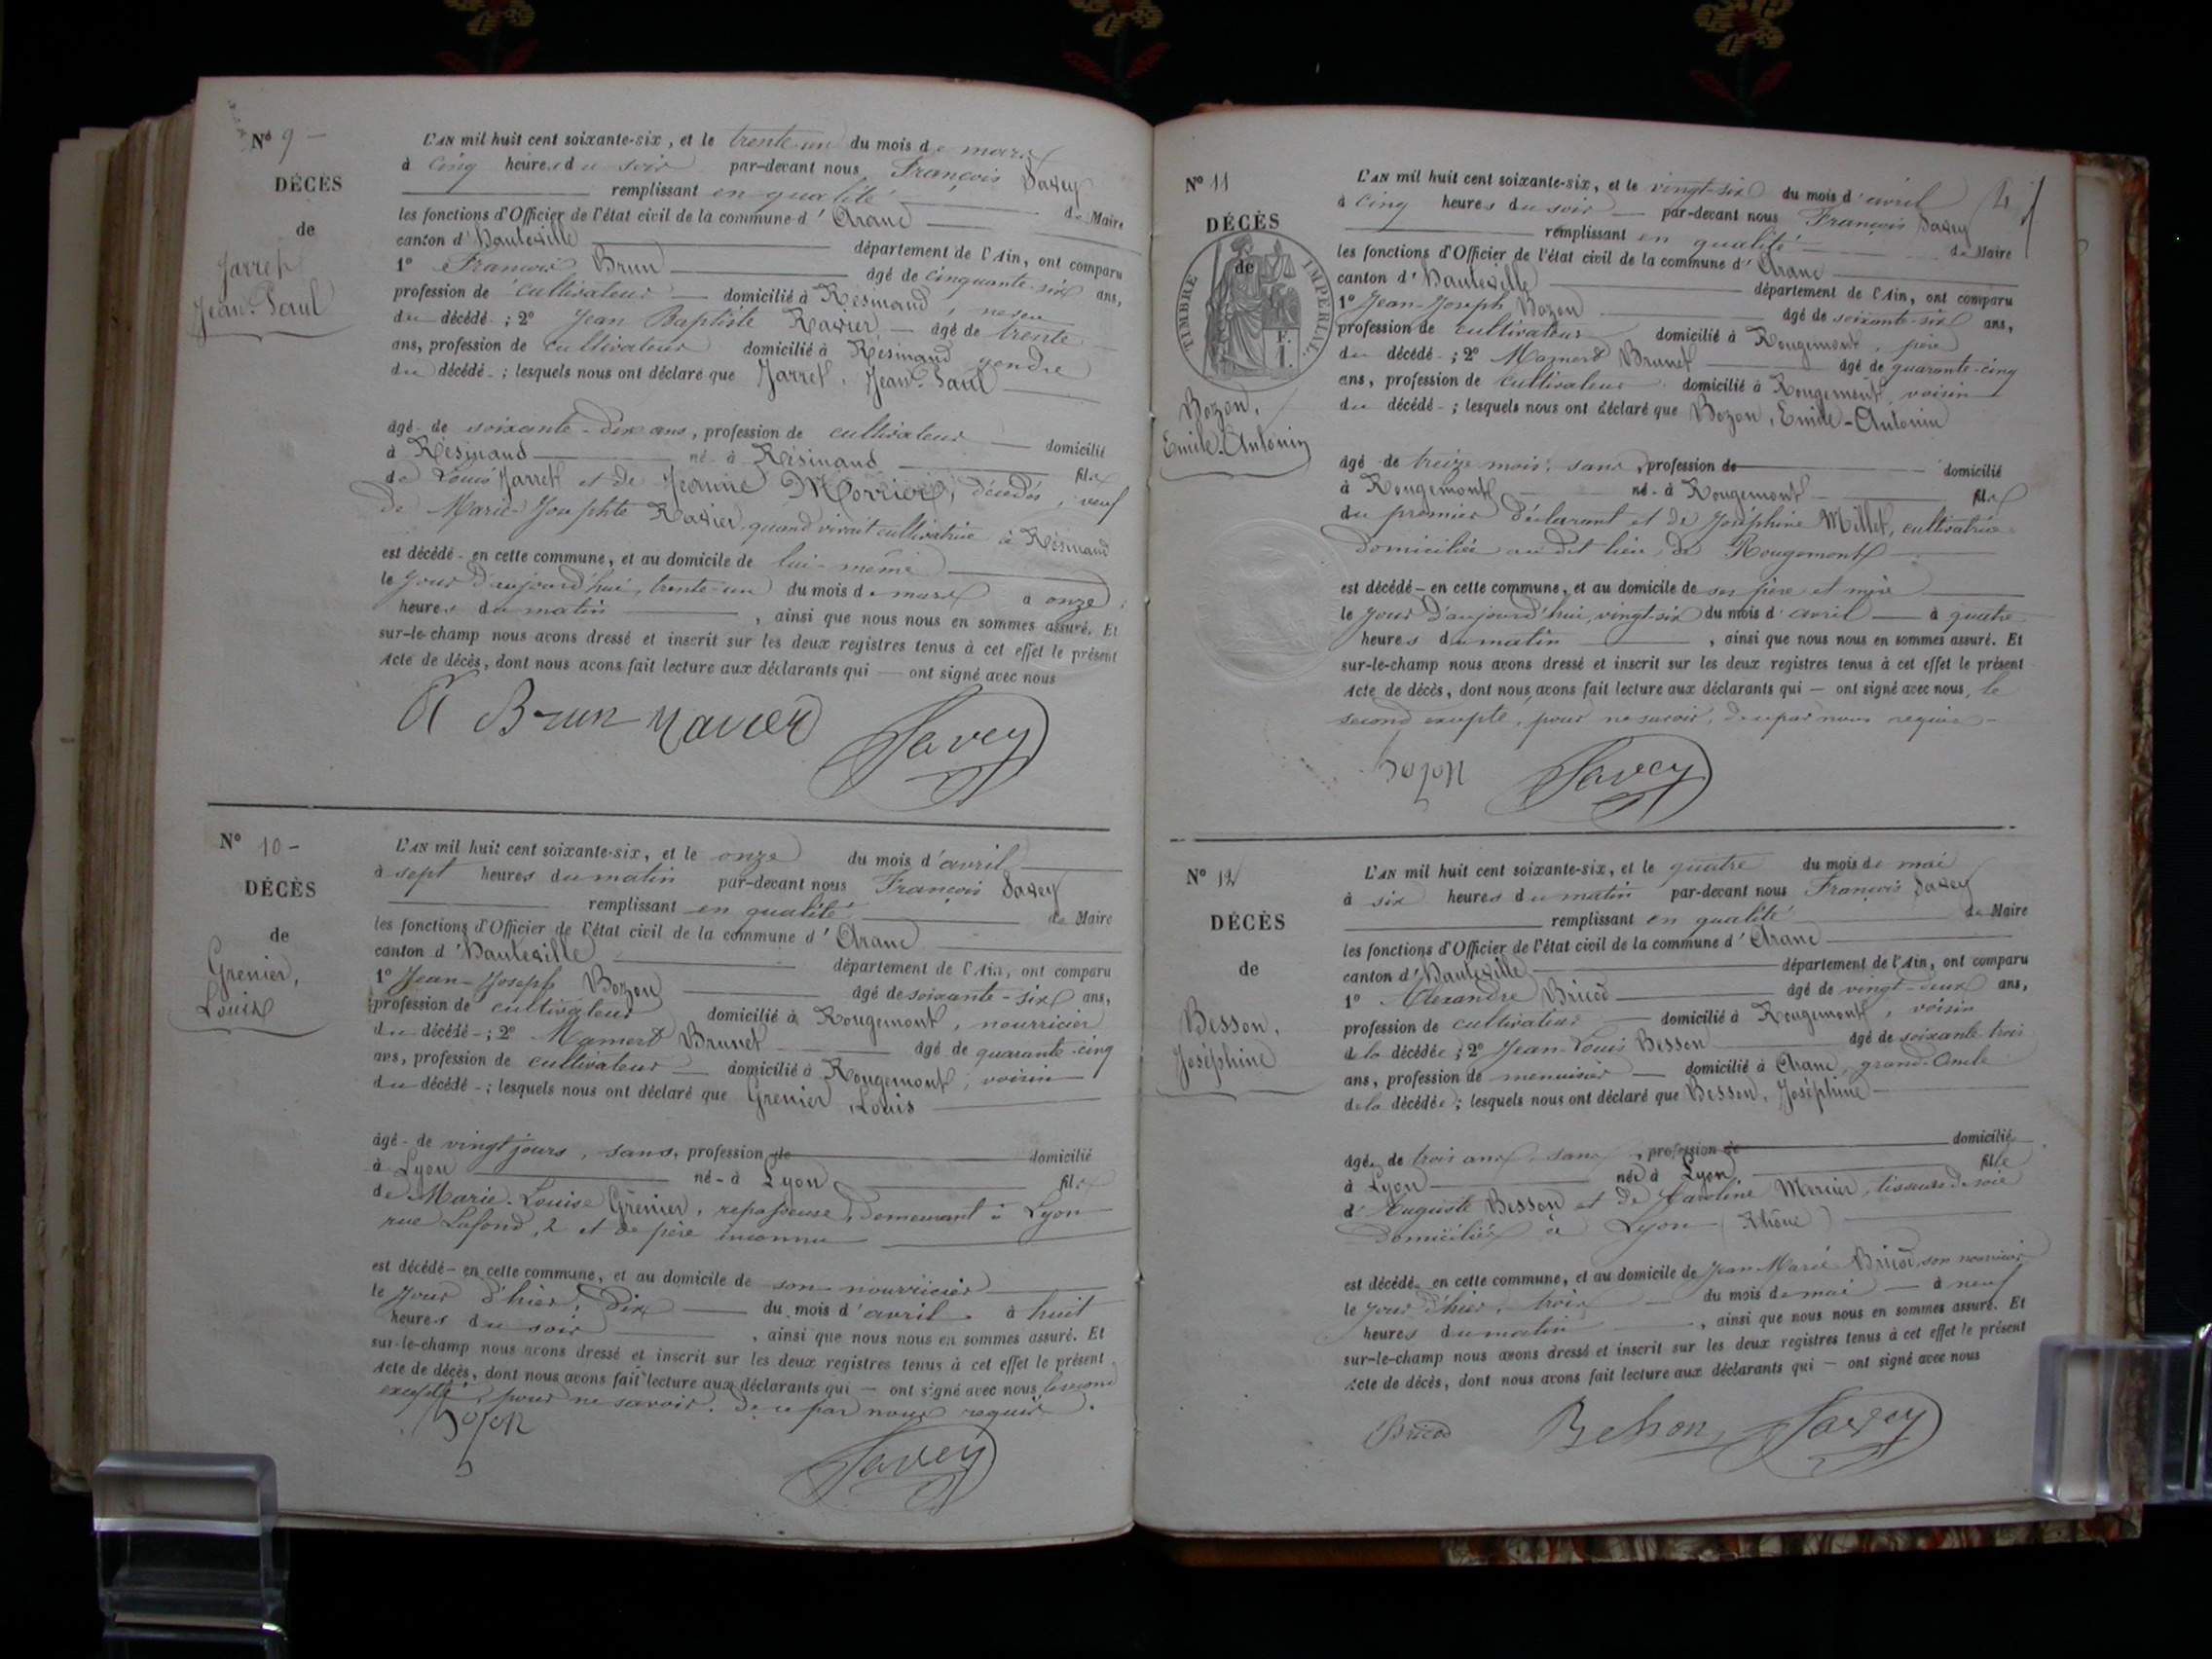 N° 9
DÉCÈS
de
Jarret
Jean-Paul
L'AN mil huit cent soixante-six, et le trente-un du mois de mars
à cinq heures du soir par-devant nous François Savey
remplissant en qualité de Maire
les fonctions d'Officier de l'état civil de la commune d'Aranc
canton d'Hauteville département de l'Ain, ont comparu
1° François Brun âgé de cinquante-six ans,
profession de cultivateur domicilié à Résinand, neveu
du décédé ; 2° Jean Baptiste Ravier âgé de trente
ans, profession de cultivateur domicilié à Résinand gendre
du décédé ; lesquels nous ont déclaré que Jarret, Jean-Paul
âgé de soixante-dix ans, profession de cultivateur domicilié
à Résinand né à Résinand fils
de Louis Jarret et de Jeanne Morrier, décédés, veuf
de Marie-Josephte Ravier, quand vivait cultivatrice à Résinand
est décédé en cette commune, et au domicile de lui-même
le jour d'aujourd'hui, trente-un du mois de mars à onze
heures du matin, ainsi que nous nous en sommes assuré. Et
sur-le-champ nous avons dressé et inscrit sur les deux registres tenus à cet effet le présent
Acte de décès, dont nous avons fait lecture aux déclarants qui — ont signé avec nous
Brun Ravier Savey
N° 10
DÉCÈS
de
Grenier,
Louis
L'AN mil huit cent soixante-six, et le onze du mois d'avril
à sept heures du matin par-devant nous François Savey
remplissant en qualité de Maire
les fonctions d'Officier de l'état civil de la commune d'Aranc
canton d'Hauteville département de l'Ain, ont comparu
1° Jean-Joseph Bozon âgé de soixante-six ans,
profession de cultivateur domicilié à Rougemont, nourricier
du décédé ; 2° Mamert Brunet âgé de quarante-cinq
ans, profession de cultivateur domicilié à Rougemont, voisin
du décédé ; lesquels nous ont déclaré que Grenier, Louis
âgé de vingt jours, sans, profession de domicilié
à Lyon né à Lyon fils
de Marie-Louise Grenier, repasseuse, demeurant à Lyon
rue Lafond, 2 et de père inconnu
est décédé en cette commune, et au domicile de son nourricier
le jour d'hier, dix du mois d'avril à huit
heures du soir, ainsi que nous nous en sommes assuré. Et
sur-le-champ nous avons dressé et inscrit sur les deux registres tenus à cet effet le présent
Acte de décès, dont nous avons fait lecture aux déclarants qui — ont signé avec nous le second
excepté, pour ne savoir, de ce par nous requis.
Bozon Savey
N° 11
DÉCÈS
de
TIMBRE IMPÉRIAL
F.
1.
Bozon,
Emile-Antonin
4
L'AN mil huit cent soixante-six, et le vingt-six du mois d'avril
à cinq heures du soir par-devant nous François Savey
remplissant en qualité de Maire
les fonctions d'Officier de l'état civil de la commune d'Aranc
canton d'Hauteville département de l'Ain, ont comparu
1° Jean-Joseph Bozon âgé de soixante-six ans,
profession de cultivateur domicilié à Rougemont, père
du décédé ; 2° Mamert Brunet âgé de quarante-cinq
ans, profession de cultivateur domicilié à Rougemont, voisin
du décédé ; lesquels nous ont déclaré que Bozon, Emile-Antonin
âgé de treize mois, sans, profession de domicilié
à Rougemont né à Rougemont fils
du premier déclarant et de Joséphine Millet, cultivatrice
domiciliée au dit lieu de Rougemont
est décédé en cette commune, et au domicile de ses père et mère
le jour d'aujourd'hui, vingt-six du mois d'avril à quatre
heures du matin, ainsi que nous nous en sommes assuré. Et
sur-le-champ nous avons dressé et inscrit sur les deux registres tenus à cet effet le présent
Acte de décès, dont nous avons fait lecture aux déclarants qui — ont signé avec nous, le
second excepté, pour ne savoir, de ce par nous requis
Bozon Savey
N° 12
DÉCÈS
de
Besson,
Joséphine
L'AN mil huit cent soixante-six, et le quatre du mois de mai
à six heures du matin par-devant nous François Savey
remplissant en qualité de Maire
les fonctions d'Officier de l'état civil de la commune d'Aranc
canton d'Hauteville département de l'Ain, ont comparu
1° Alexandre Bricod âgé de vingt-deux ans,
profession de cultivateur domicilié à Rougemont, voisin
de la décédée ; 2° Jean-Louis Besson âgé de soixante-trois
ans, profession de menuisier domicilié à Aranc, grand-oncle
de la décédée ; lesquels nous ont déclaré que Besson, Joséphine
âgée de trois ans, sans, profession de domicilié
à Lyon née à Lyon fille
d'Auguste Besson et de Caroline Mercier, tisseurs de soie
domiciliés à Lyon (Rhône)
est décédée en cette commune, et au domicile de Jean Marie Bricod, son nourricier
le jour d'hier, trois du mois de mai à neuf
heures du matin, ainsi que nous nous en sommes assuré. Et
sur-le-champ nous avons dressé et inscrit sur les deux registres tenus à cet effet le présent
Acte de décès, dont nous avons fait lecture aux déclarants qui — ont signé avec nous
Bricod Besson Savey